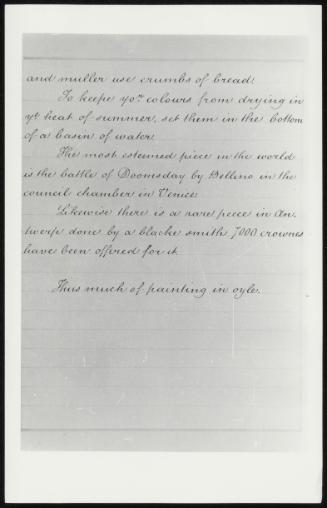 and muller use crumbs of bread.
To keepe yor colours from drying in
yt heat of summer, set them in the bottom
of a basin of water
The most esteemed piece in the world
is the battle of Doomsday by Bellino in the
council chamber in Venice
Likewise there is a rare peece in An.
twerp done by a blacke smith, 7000 crownes
have been offered for it
Thus much of painting in oyle.